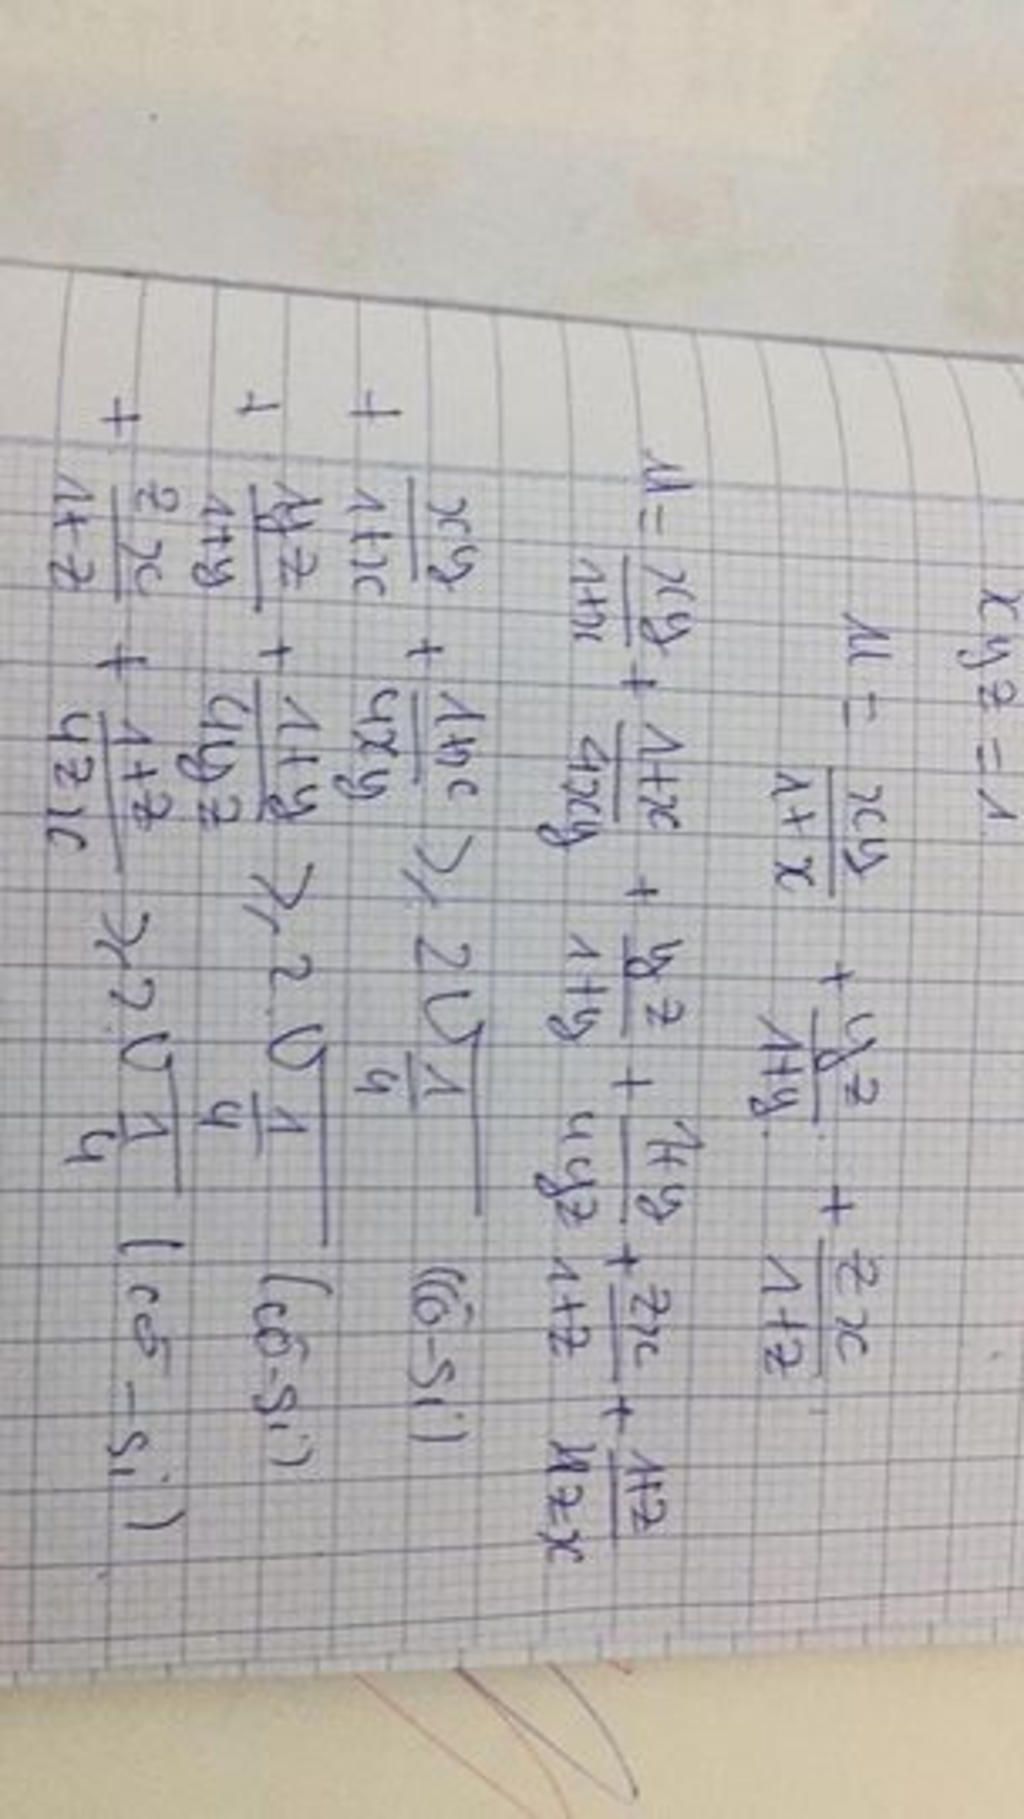 xyz = 1
M = xy/(1+x) + yz/(1+y) + zx/(1+z)
M = xy/(1+x) + (1+x)/(4xy) + yz/(1+y) + (1+y)/(4yz) + zx/(1+z) + (1+z)/(4zx)
+ xy/(1+x) + (1+x)/(4xy) ⩾ 2√(1/4) (cô-si)
+ yz/(1+y) + (1+y)/(4yz) ⩾ 2√(1/4) (cô-si)
+ zx/(1+z) + (1+z)/(4zx) ⩾ 2√(1/4) (cô-si)